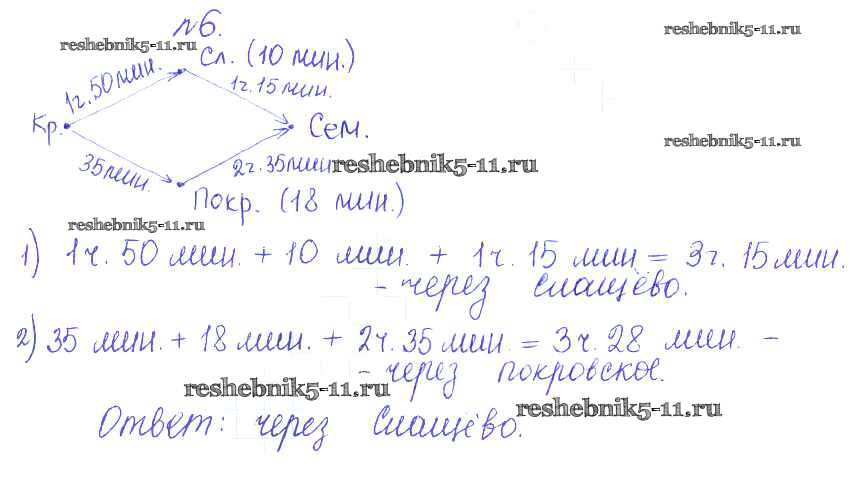 №6.
reshebnik5-11.ru
reshebnik5-11.ru
Сл. (10 мин.)
1ч. 50 мин.
1ч. 15 мин.
Кр.
Сем.
reshebnik5-11.ru
35 мин.
2ч. 35 мин
reshebnik5-11.ru
Покр. (18 мин.)
reshebnik5-11.ru
1) 1ч. 50 мин. + 10 мин. + 1ч. 15 мин = 3ч. 15 мин.
- через Слащёво.
2) 35 мин. + 18 мин. + 2ч. 35 мин. = 3ч. 28 мин. -
- через Покровское.
reshebnik5-11.ru
reshebnik5-11.ru
Ответ: через Слащёво.